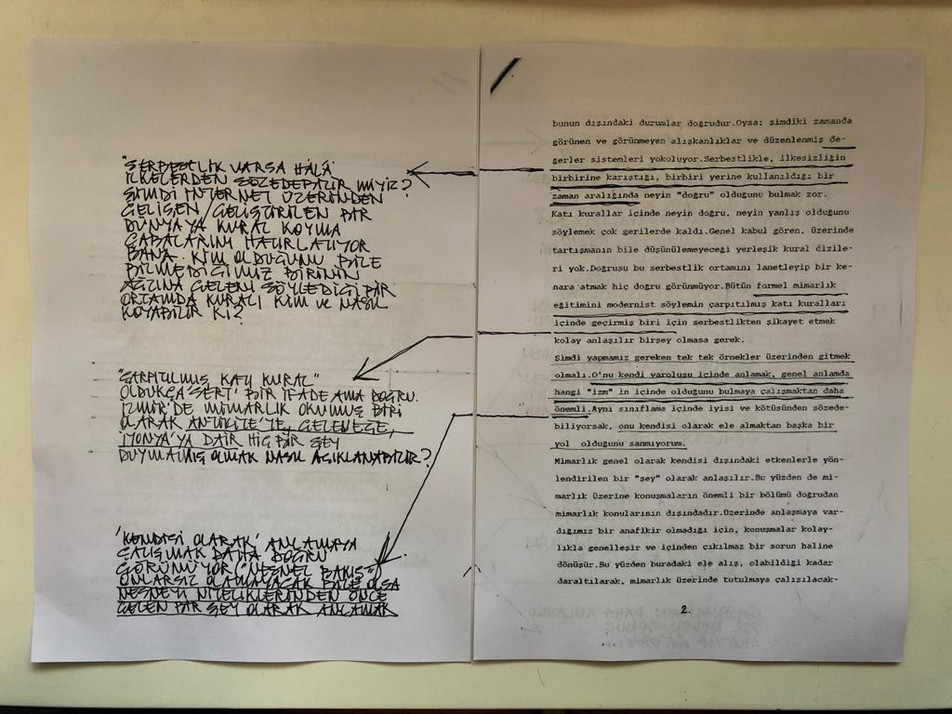 "SERBESTLİK VARSA HÂLÂ
İLKELERDEN SÖZEDEBİLİR MİYİZ?
ŞİMDİ İNTERNET ÜZERİNDEN
GELİŞEN / GELİŞTİRİLEN BİR
DÜNYAYA KURAL KOYMA
ÇABALARINI HATIRLATIYOR
BANA. KİM OLDUĞUNU BİLE
BİLMEDİĞİMİZ BİRİNİN
AĞZINA GELENİ SÖYLEDİĞİ BİR
ORTAMDA KURALI KİM ve NASIL
KOYABİLİR Kİ?
"ÇARPITILMIŞ KATI KURAL"
OLDUKÇA 'SERT' BİR İFADE AMA DOĞRU.
İZMİR'DE MİMARLIK OKUMUŞ BİRİ
OLARAK ANTİKİTE'YE, GELENEĞE,
İYONYA'YA DAİR HİÇ BİR ŞEY
DUYMAMIŞ OLMAK NASIL AÇIKLANABİLİR?
'KENDİSİ OLARAK' ANLAMAYA
ÇALIŞMAK DAHA DOĞRU
GÖRÜNÜYOR ("NESNEL BAKIŞ")
ONLARSIZ OLAMAYACAK BİLE OLSA
NESNEYİ NİTELİKLERİNDEN ÖNCE
GELEN BİR ŞEY OLARAK ANLAMAK
bunun dışındaki durumlar doğrudur.Oysa: şimdiki zamanda
görünen ve görünmeyen alışkanlıklar ve düzenlenmiş de-
ğerler sistemleri yokoluyor.Serbestlikle, ilkesizliğin
birbirine karıştığı, birbiri yerine kullanıldığı bir
zaman aralığında neyin "doğru" olduğunu bulmak zor.
Katı kurallar içinde neyin doğru, neyin yanlış olduğunu
söylemek çok gerilerde kaldı.Genel kabul gören, üzerinde
tartışmanın bile düşünülemeyeceği yerleşik kural dizile-
ri yok.Doğrusu bu serbestlik ortamını lanetleyip bir ke-
nara atmak hiç doğru görünmüyor.Bütün formel mimarlık
eğitimini modernist söylemin çarpıtılmış katı kuralları
içinde geçirmiş biri için serbestlikten şikayet etmek
kolay anlaşılır birşey olmasa gerek.
Şimdi yapmamız gereken tek tek örnekler üzerinden gitmek
olmalı.O'nu kendi varoluşu içinde anlamak, genel anlamda
hangi "izm" in içinde olduğunu bulmaya çalışmaktan daha
önemli.Aynı sınıflama içinde iyisi ve kötüsünden sözede-
biliyorsak, onu kendisi olarak ele almaktan başka bir
yol olduğunu sanmıyorum.
Mimarlık genel olarak kendisi dışındaki etkenlerle yön-
lendirilen bir "şey" olarak anlaşılır.Bu yüzden de mi-
marlık üzerine konuşmaların önemli bir bölümü doğrudan
mimarlık konularının dışındadır.Üzerinde anlaşmaya var-
dığımız bir anafikir olmadığı için, konuşmalar kolay-
lıkla genelleşir ve içinden çıkılmaz bir sorun haline
dönüşür.Bu yüzden buradaki ele alış, olabildiği kadar
daraltılarak, mimarlık üzerinde tutulmaya çalışılacak-
2.